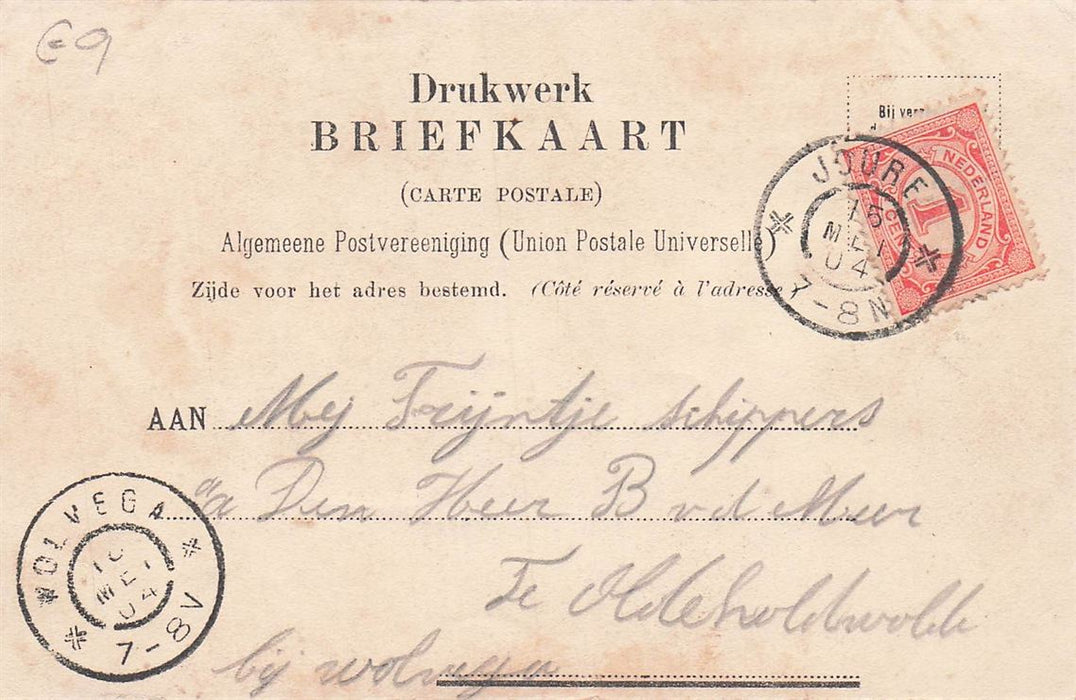 €9
Drukwerk
BRIEFKAART
(CARTE POSTALE)
Algemeene Postvereeniging (Union Postale Universelle)
Zijde voor het adres bestemd. (Côté réservé à l'adresse)
Bij
NEDERLAND
1
CENT
JOURE
15
MEI
04
7-8N
AAN Mej Trijntje Schippers
a/a Den Heer B v d Meer
Te Oldeholdwolde
bij wolvega
WOLVEGA
16
MEI
04
7-8V